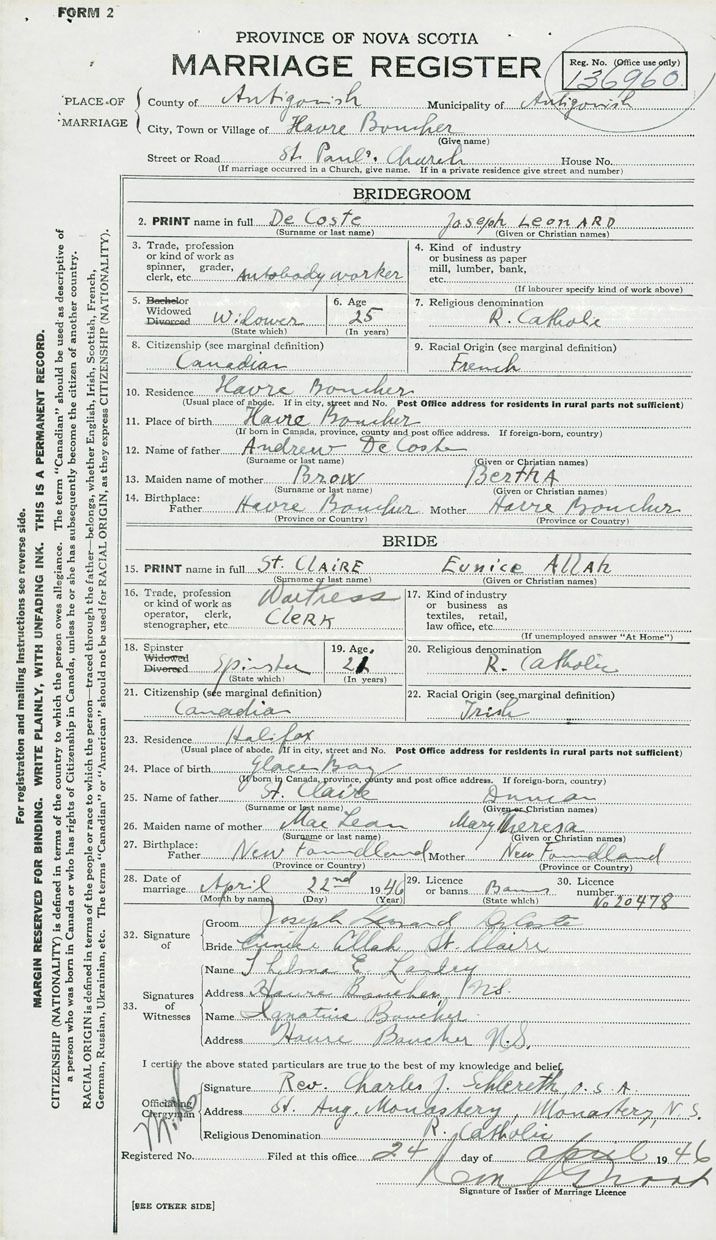 FORM 2
PROVINCE OF NOVA SCOTIA
MARRIAGE REGISTER
Reg. No. (Office use only)
136960
PLACE OF MARRIAGE
County of Antigonish Municipality of Antigonish
City, Town or Village of Havre Boucher
(Give name)
Street or Road St. Paul's Church House No.
(If marriage occurred in a Church, give name. If in a private residence give street and number)
BRIDEGROOM
2. PRINT name in full De Coste Joseph LeonARD
(Surname or last name) (Given or Christian names)
3. Trade, profession or kind of work as spinner, grader, clerk, etc. Autobody worker
4. Kind of industry or business as paper mill, lumber, bank, etc.
(If labourer specify kind of work above)
5. Bachelor Widowed Divorced Widower
(State which)
6. Age 25
(In years)
7. Religious denomination
R. Catholic
8. Citizenship (see marginal definition)
Canadian
9. Racial Origin (see marginal definition)
French
10. Residence Havre Boucher
(Usual place of abode. If in city, street and No. Post Office address for residents in rural parts not sufficient)
11. Place of birth Havre Boucher
(If born in Canada, province, county and post office address. If foreign-born, country)
12. Name of father Andrew De Coste
(Surname or last name) (Given or Christian names)
13. Maiden name of mother Brow BerthA
(Surname or last name) (Given or Christian names)
14. Birthplace: Father Havre Boucher Mother Havre Boucher
(Province or Country) (Province or Country)
BRIDE
15. PRINT name in full St. CLAIRE Eunice Allah
(Surname or last name) (Given or Christian names)
16. Trade, profession or kind of work as operator, clerk, stenographer, etc. Waitress CLerK
17. Kind of industry or business as textiles, retail, law office, etc.
(If unemployed answer "At Home")
18. Spinster Widowed Divorced Spinster
(State which)
19. Age. 21
(In years)
20. Religious denomination
R. Catholic
21. Citizenship (see marginal definition)
Canadian
22. Racial Origin (see marginal definition)
Irish
23. Residence Halifax
(Usual place of abode. If in city, street and No. Post Office address for residents in rural parts not sufficient)
24. Place of birth Glace Bay
(If born in Canada, province, county and post office address. If foreign-born, country)
25. Name of father St. Claire Duncan
(Surname or last name) (Given or Christian names)
26. Maiden name of mother Mac Lean Mary Theresa
(Surname or last name) (Given or Christian names)
27. Birthplace: Father New Foundland Mother New Foundland
(Province or Country) (Province or Country)
28. Date of marriage April 22nd 1946
(Month by name) (Day) (Year)
29. Licence or banns Banns
(State which)
30. Licence number No 20478
32. Signature of
Groom Joseph Leonard DeCoste
Bride Eunice Allah St. Claire
33. Signatures of Witnesses
Name Thelma E. Landry
Address Havre Boucher, N.S.
Name Ignatius Boucher
Address Havre Boucher N.S.
I certify the above stated particulars are true to the best of my knowledge and belief.
Officiating Clergyman
Signature Rev. Charles J. Schlereth, O.S.A.
Address St. Aug. Monastery, Monastery, N.S.
Religious Denomination R. Catholic
Registered No. Filed at this office 24 day of April 1946
Signature of Issuer of Marriage Licence
[SEE OTHER SIDE]
For registration and mailing instructions see reverse side.
MARGIN RESERVED FOR BINDING. WRITE PLAINLY, WITH UNFADING INK. THIS IS A PERMANENT RECORD.
CITIZENSHIP (NATIONALITY) is defined in terms of the country to which the person owes allegiance. The term "Canadian" should be used as descriptive of
a person who was born in Canada or who has rights of Citizenship in Canada, unless he or she has subsequently become the citizen of another country.
RACIAL ORIGIN is defined in terms of the people or race to which the person—traced through the father—belongs, whether English, Irish, Scottish, French,
German, Russian, Ukrainian, etc. The terms "Canadian" or "American" should not be used for RACIAL ORIGIN, as they express CITIZENSHIP (NATIONALITY).